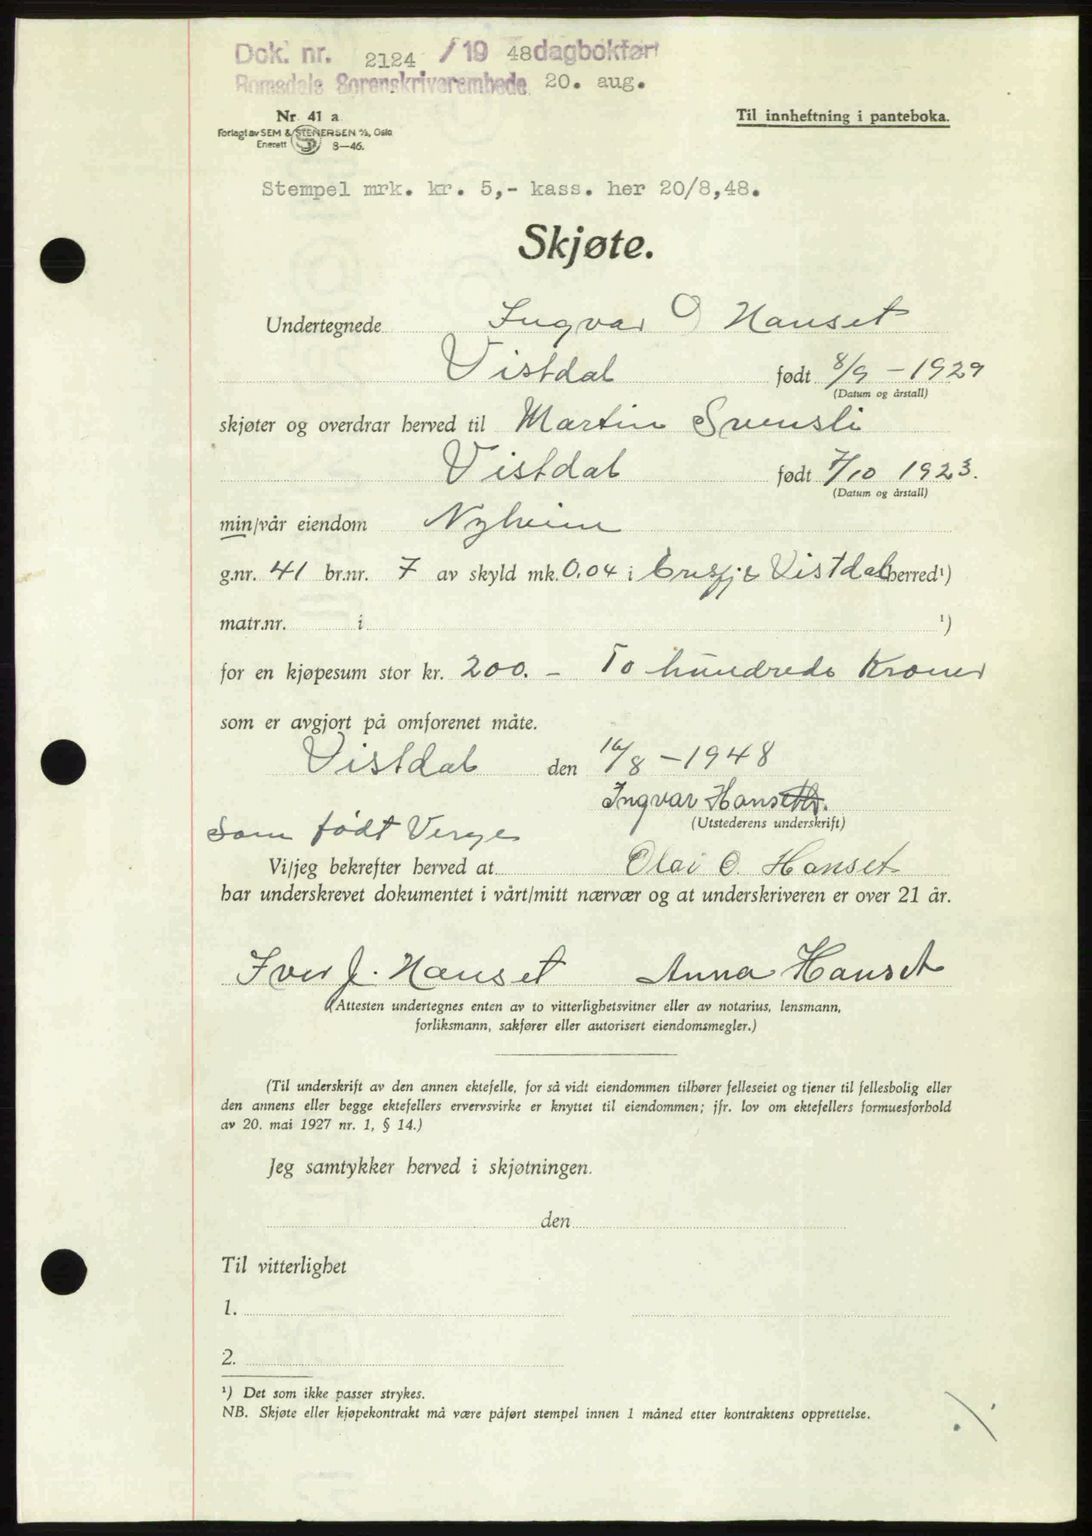 Dok. nr. 2124 /19 48 dagbokført
Romsdals Sorenskriverembede 20. aug.
Nr. 41 a
Til innheftning i panteboka.
Forlagt av SEM & STENERSEN A/S, Oslo
Enerett 8—46.
Stempel mrk. kr. 5,- kass. her 20/8,48.
Skjøte.
Undertegnede Ingvar O Hanset
Vistdal født 8/9 - 1929
(Datum og årstall)
skjøter og overdrar herved til Martin Svensli
Vistdal født 7/10 1923.
(Datum og årstall)
min/vår eiendom Nyheim
g.nr. 41 br.nr. 7 av skyld mk. 0,04 i & Vistdal herred¹)
matr.nr. i ¹)
for en kjøpesum stor kr. 200. - To hundrede Kroner
som er avgjort på omforenet måte.
Vistdal den 16/8 - 1948
Ingvar Hanset
(Utstederens underskrift)
Som født Verge
Vi/jeg bekrefter herved at Olai O. Hanset
har underskrevet dokumentet i vårt/mitt nærvær og at underskriveren er over 21 år.
Iver J. Hanset Anna Hanset
(Attesten undertegnes enten av to vitterlighetsvitner eller av notarius, lensmann,
forliksmann, sakfører eller autorisert eiendomsmegler.)
(Til underskrift av den annen ektefelle, for så vidt eiendommen tilhører felleseiet og tjener til fellesbolig eller
den annens eller begge ektefellers ervervsvirke er knyttet til eiendommen; jfr. lov om ektefellers formuesforhold
av 20. mai 1927 nr. 1, § 14.)
Jeg samtykker herved i skjøtningen.
den
Til vitterlighet
1.
2.
¹) Det som ikke passer strykes.
NB. Skjøte eller kjøpekontrakt må være påført stempel innen 1 måned etter kontraktens opprettelse.